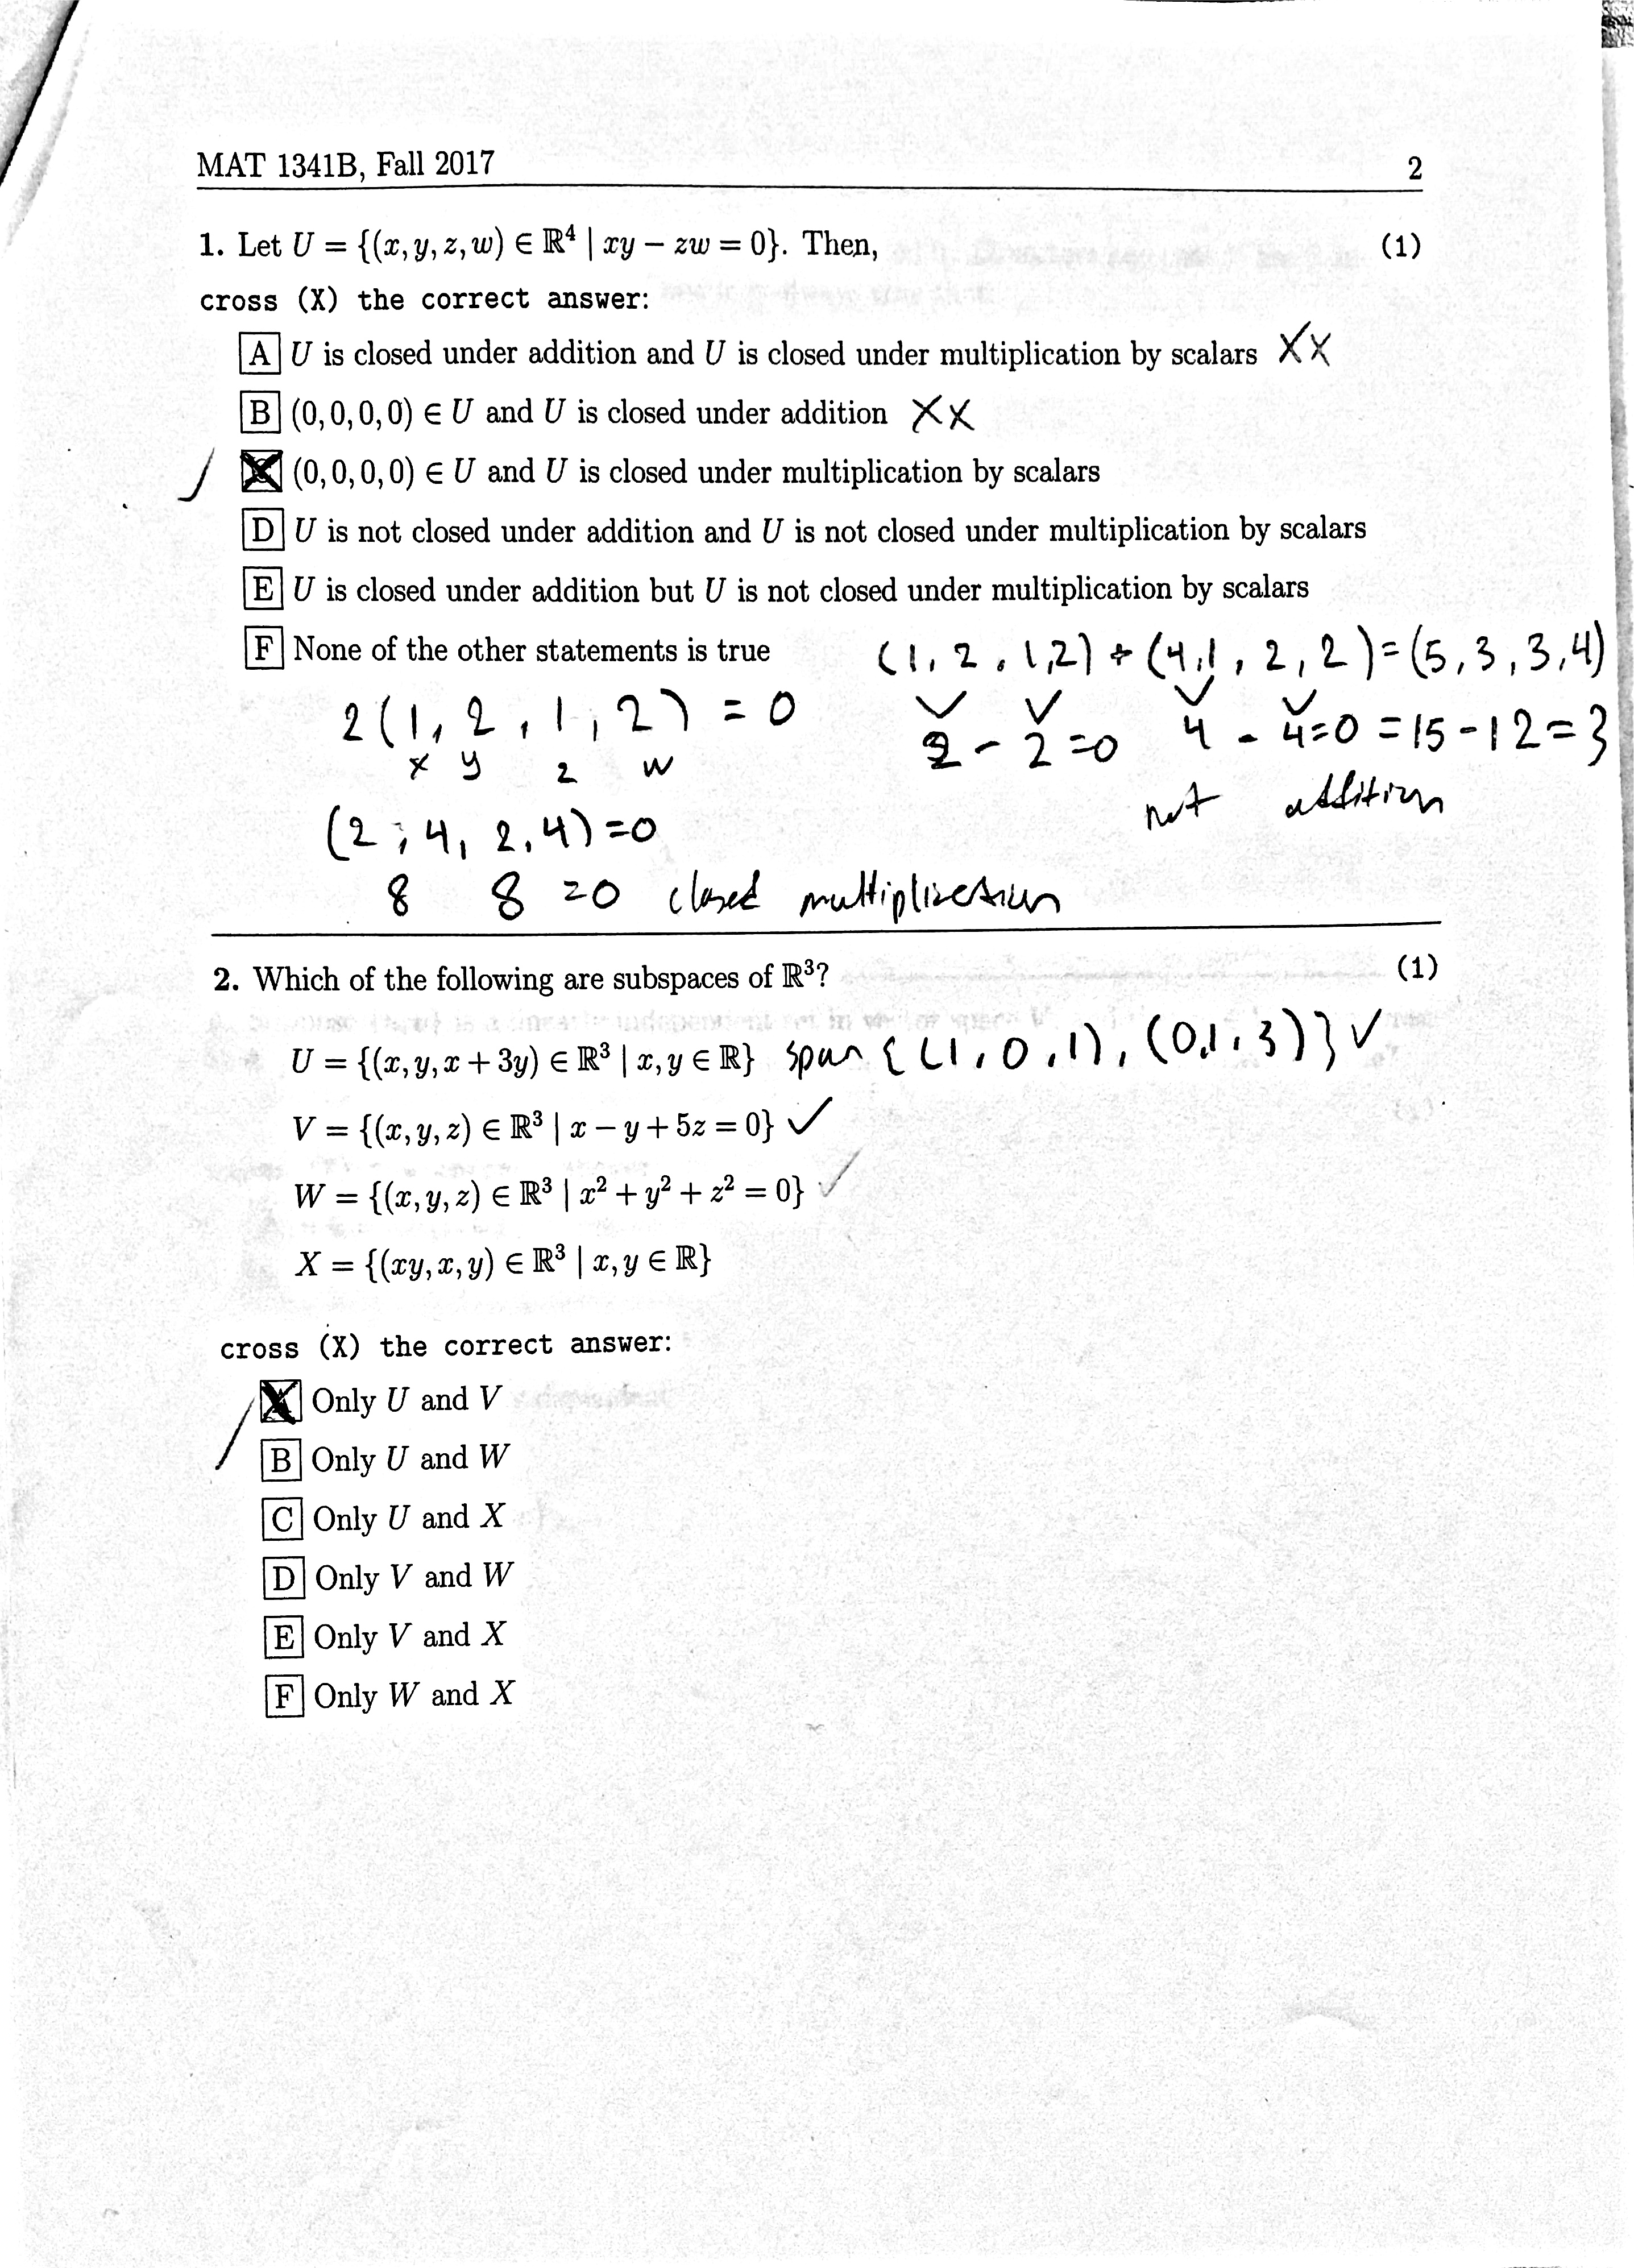 MAT 1341B, Fall 2017 2
1. Let U = {(x, y, z, w) ∈ ℝ⁴ | xy − zw = 0}. Then, (1)
cross (X) the correct answer:
A U is closed under addition and U is closed under multiplication by scalars XX
B (0, 0, 0, 0) ∈ U and U is closed under addition XX
X (0, 0, 0, 0) ∈ U and U is closed under multiplication by scalars
D U is not closed under addition and U is not closed under multiplication by scalars
E U is closed under addition but U is not closed under multiplication by scalars
F None of the other statements is true
(1, 2, 1, 2) + (4, 1, 2, 2) = (5, 3, 3, 4)
2(1, 2, 1, 2) = 0
x y z w
2 − 2 = 0 4 - 4 = 0 = 15 - 12 = 3
not addition
(2, 4, 2, 4) = 0
8 8 = 0 closed multiplication
2. Which of the following are subspaces of ℝ³? (1)
U = {(x, y, x + 3y) ∈ ℝ³ | x, y ∈ ℝ} span {(1, 0, 1), (0, 1, 3)} ✓
V = {(x, y, z) ∈ ℝ³ | x − y + 5z = 0} ✓
W = {(x, y, z) ∈ ℝ³ | x² + y² + z² = 0} ✓
X = {(xy, x, y) ∈ ℝ³ | x, y ∈ ℝ}
cross (X) the correct answer:
X Only U and V
B Only U and W
C Only U and X
D Only V and W
E Only V and X
F Only W and X